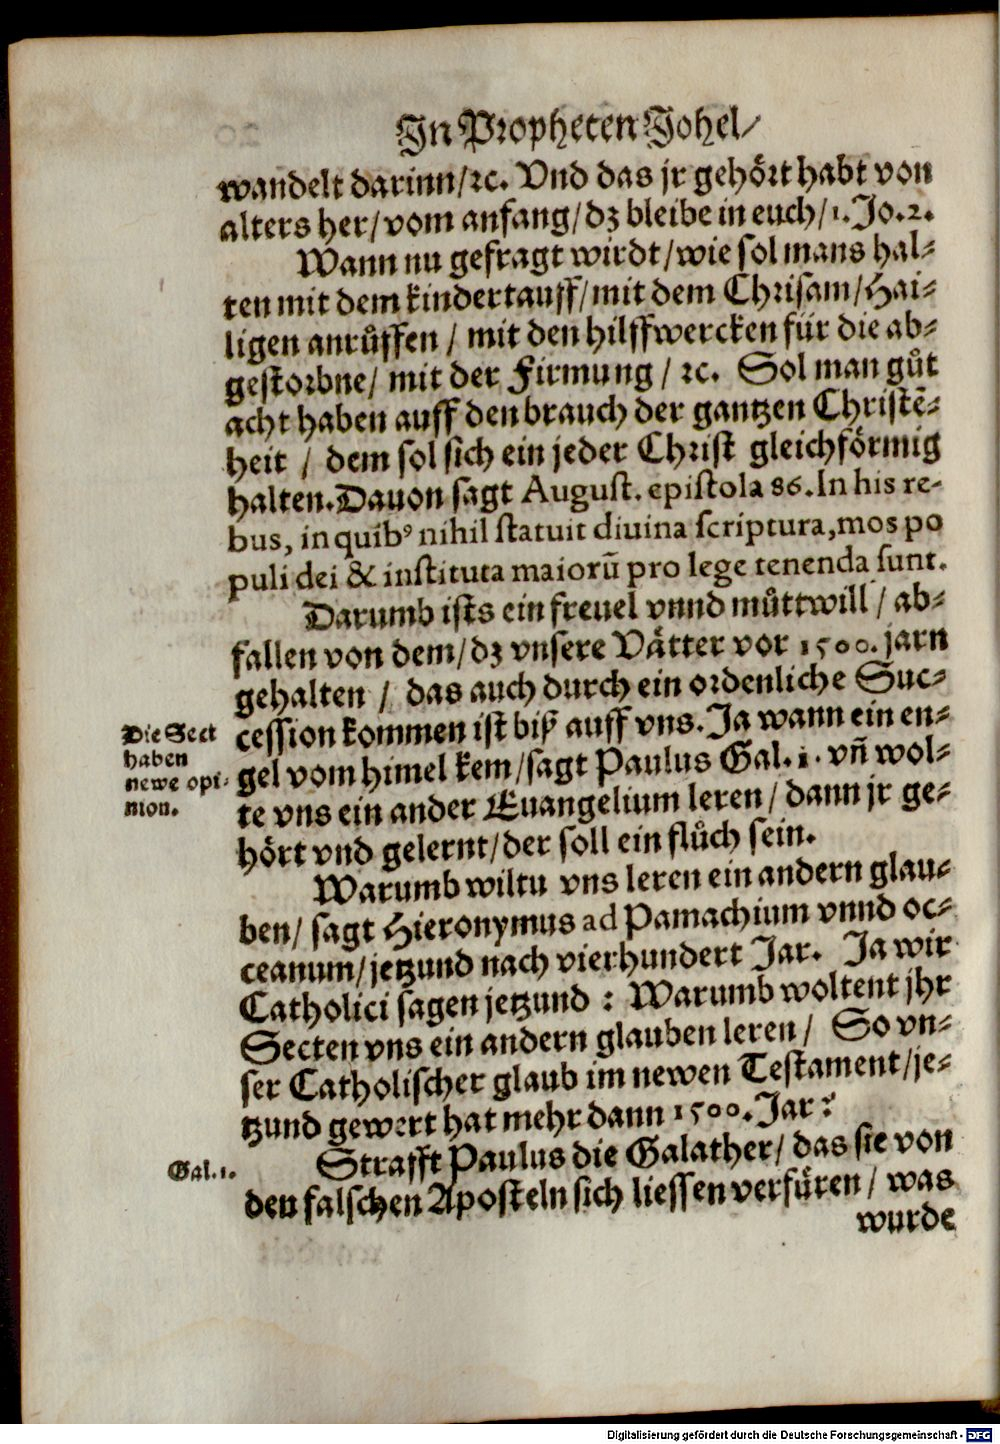 In Propheten Johel/
wandelt darinn/ꝛc. Vnd das jr gehört habt von
alters her/vom anfang/dz bleibe in euch/1.Jo.2.
Wann nu gefragt wirdt/wie sol mans hal-
ten mit dem kindertauff/mit dem Chrisam/Hai-
ligen anrůffen/ mit den hilffwercken für die ab-
gestorbne/ mit der Firmung/ ꝛc. Sol man gůt
acht haben auff den brauch der gantzen Christē-
heit / dem sol sich ein jeder Christ gleichförmig
halten. Dauon sagt August. epistola 86. In his re-
bus, in quibꝰ nihil statuit diuina scriptura, mos po
puli dei & instituta maiorū pro lege tenenda sunt.
Darumb ists ein freuel vnnd můttwill/ ab-
fallen von dem/dz vnsere Vätter vor 1500. jarn
gehalten / das auch durch ein ordenliche Suc-
Die Sect
haben
newe opi-
nion.
cession kommen ist biß auff vns. Ja wann ein en-
gel vom himel kem/sagt Paulus Gal.1. vn̄ wol-
te vns ein ander Euangelium leren/ dann jr ge-
hört vnd gelernt/der soll ein flůch sein.
Warumb wiltu vns leren ein andern glau-
ben/ sagt Hieronymus ad Pamachium vnnd oc-
ceanum/jetzund nach vierhundert Jar. Ja wir
Catholici sagen jetzund : Warumb woltent jhr
Secten vns ein andern glauben leren/ So vn-
ser Catholischer glaub im newen Testament/je-
tzund gewert hat mehr dann 1500. Jar?
Gal.1.
Strafft Paulus die Galather/ das sie von
den falschen Aposteln sich liessen verfüren/ was
wurde
Digitalisierung gefördert durch die Deutsche Forschungsgemeinschaft - DFG